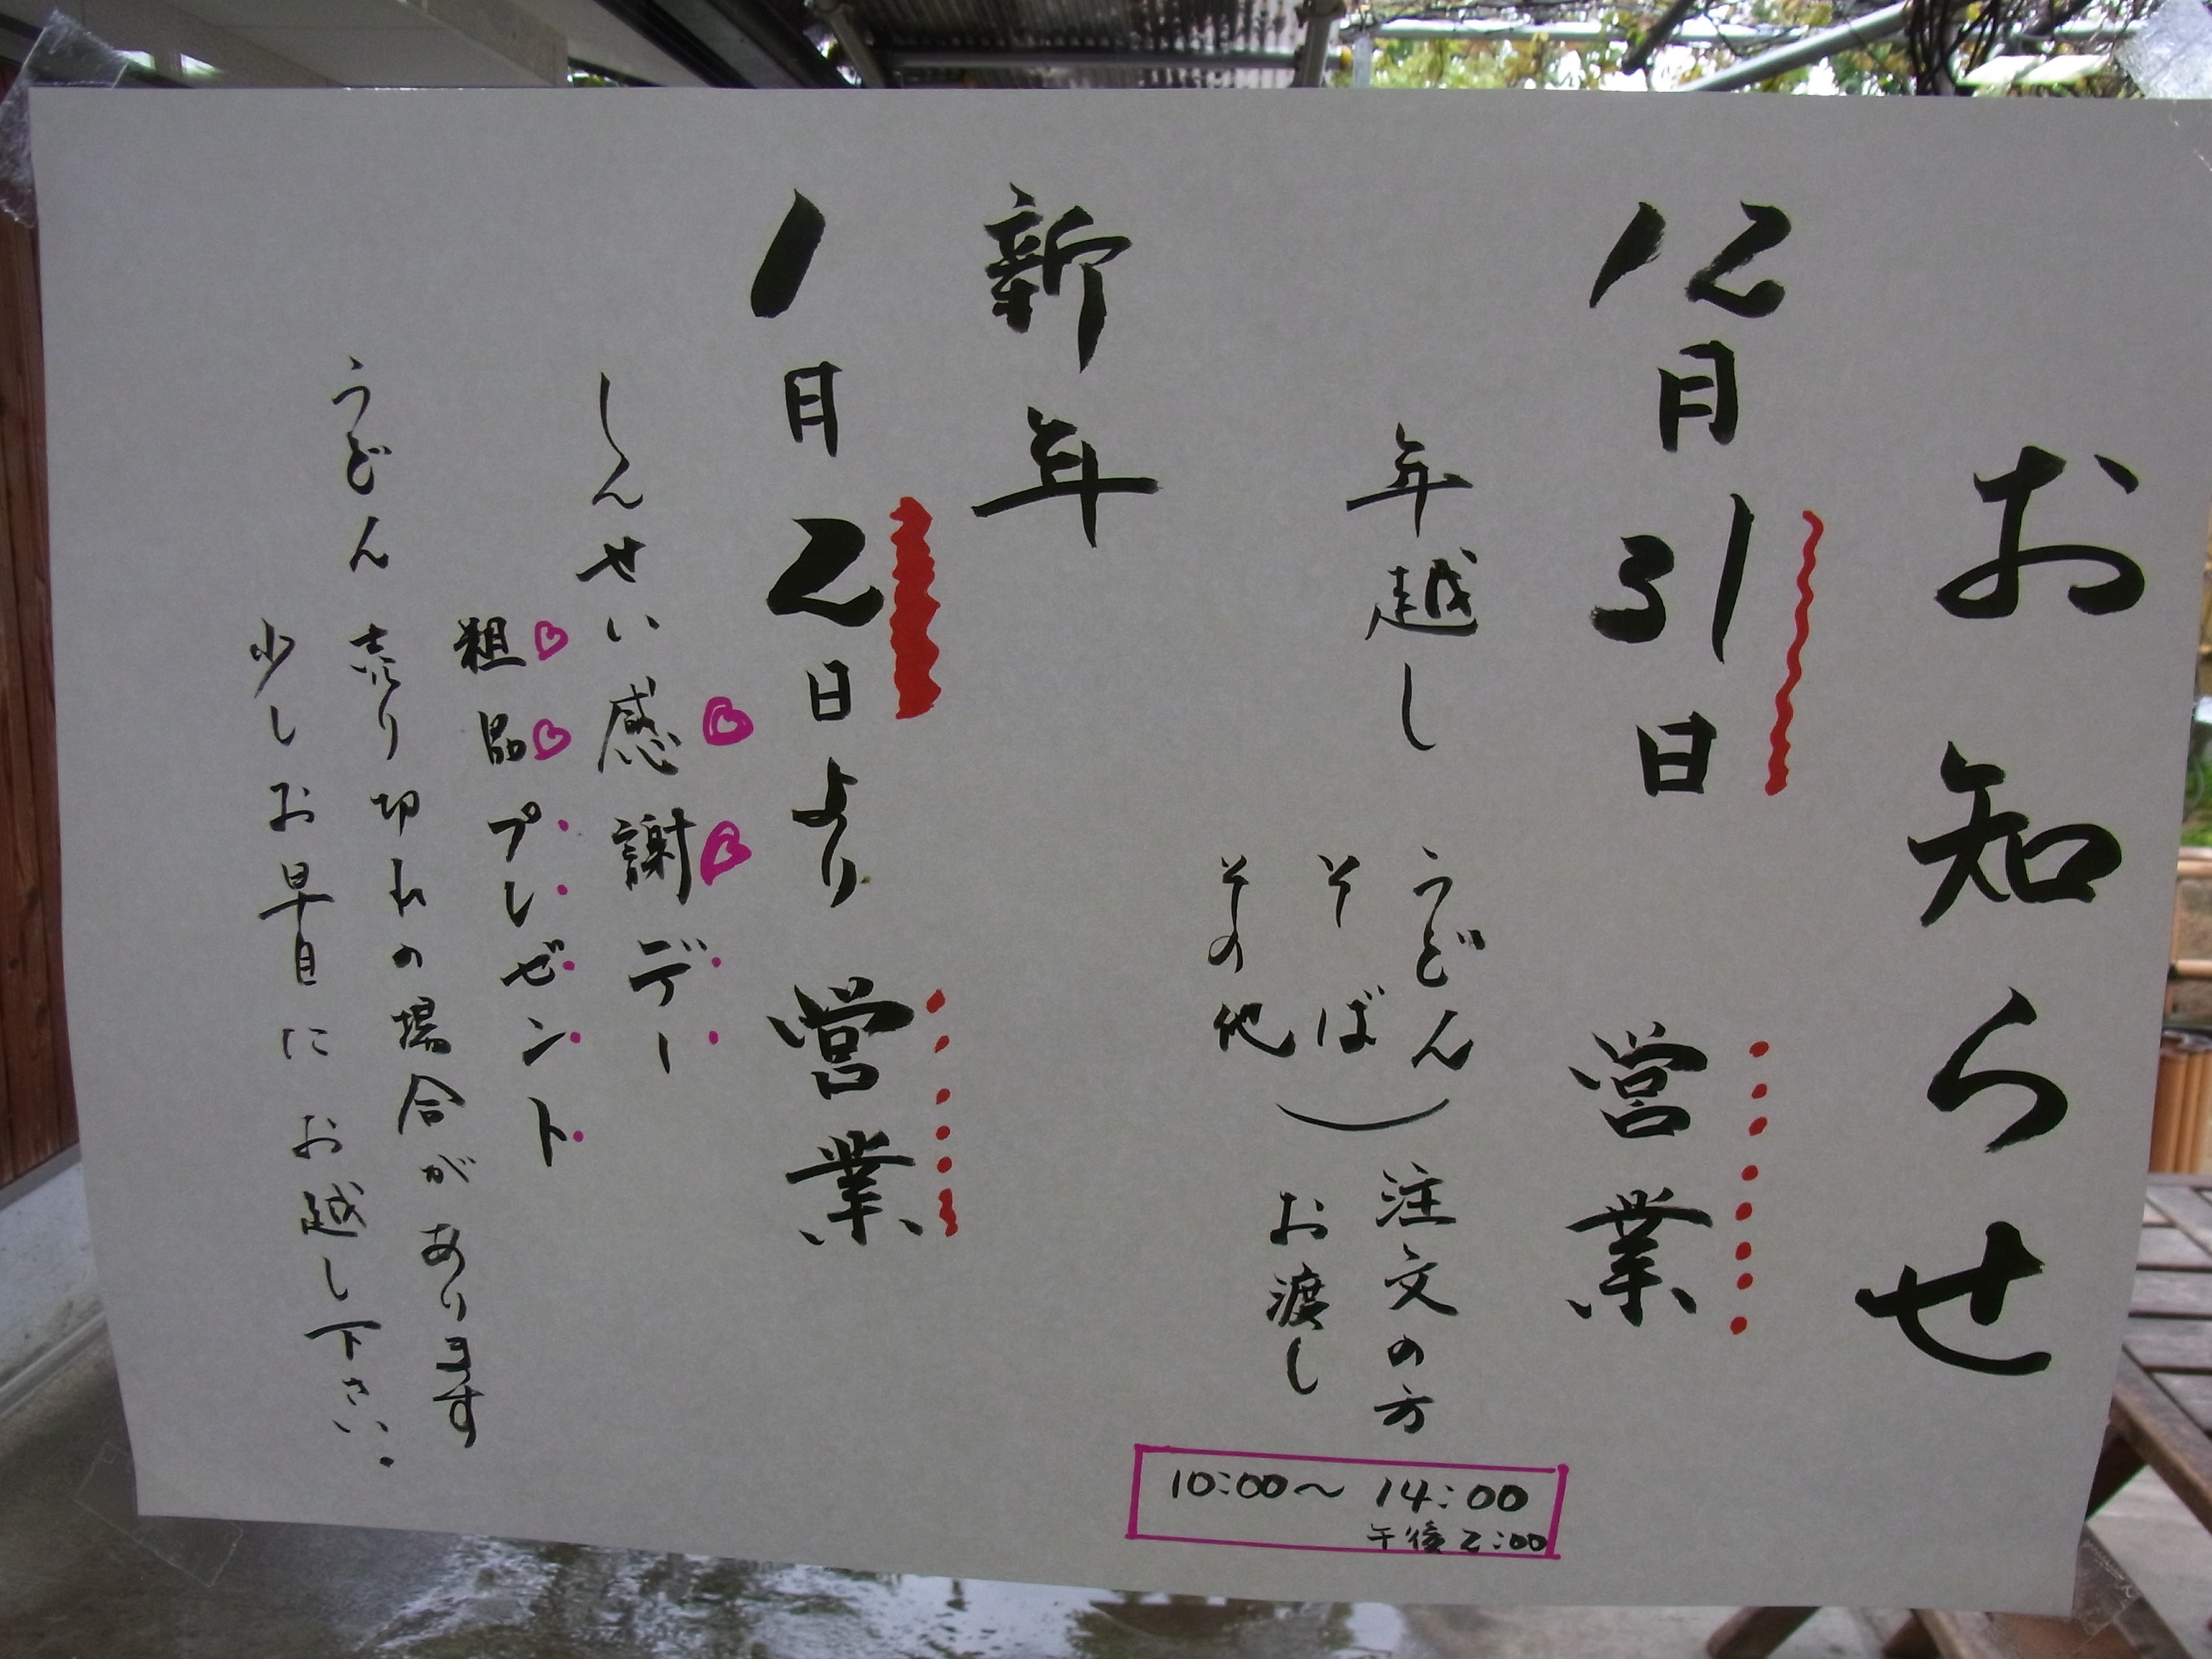 お知らせ
12月31日 営業
年越し うどん
そば
その他
注文の方
お渡し
10:00〜14:00
午後2:00
新年
1月2日より 営業
しんせい感謝デー
粗品プレゼント
うどん売り切れの場合があります
少しお早目にお越し下さい。